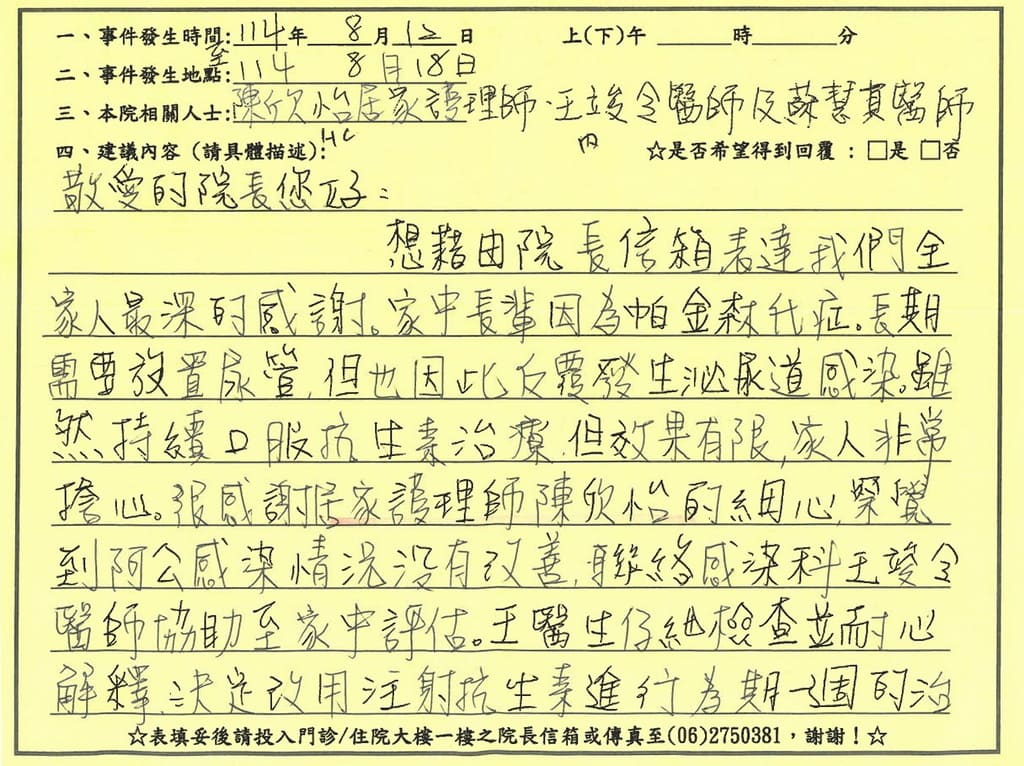 一、事件發生時間：114年 8月12日 上(下)午 時 分
至
二、事件發生地點：114 8月18日
三、本院相關人士：陳欣怡居家護理師、王竣令醫師及蘇慧真醫師
HC 內
四、建議內容（請具體描述）： ☆是否希望得到回覆：□是 □否
敬愛的院長您好：
想藉由院長信箱表達我們全
家人最深的感謝。家中長輩因為帕金森氏症。長期
需要放置尿管，但也因此反覆發生泌尿道感染。雖
然持續口服抗生素治療，但效果有限，家人非常
擔心。很感謝居家護理師陳欣怡的細心，察覺
到阿公感染情況沒有改善，聯絡感染科王竣令
醫師協助至家中評估。王醫生仔細檢查並耐心
解釋，決定改用注射抗生素進行為期一週的治
☆表填妥後請投入門診/住院大樓一樓之院長信箱或傳真至(06)2750381，謝謝！☆